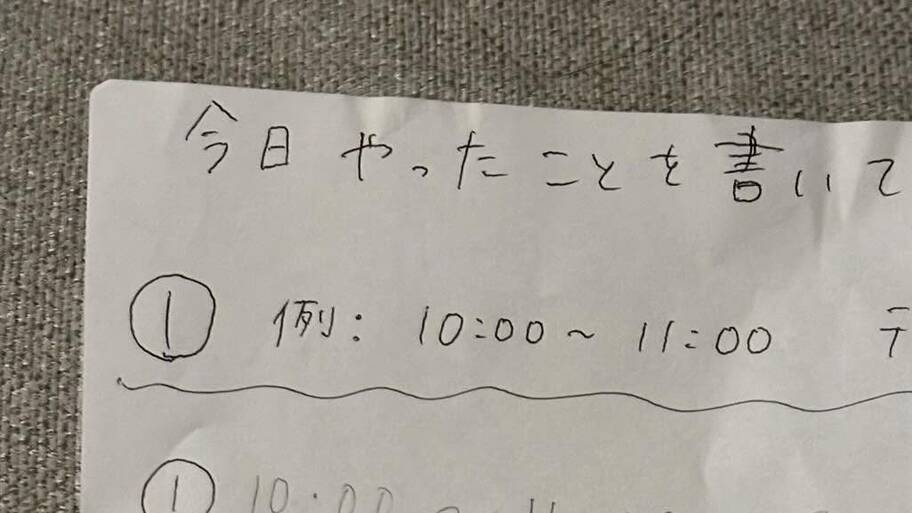 今日やったことを書いて
① 例: 10:00~11:00 テ
① 10:00~11